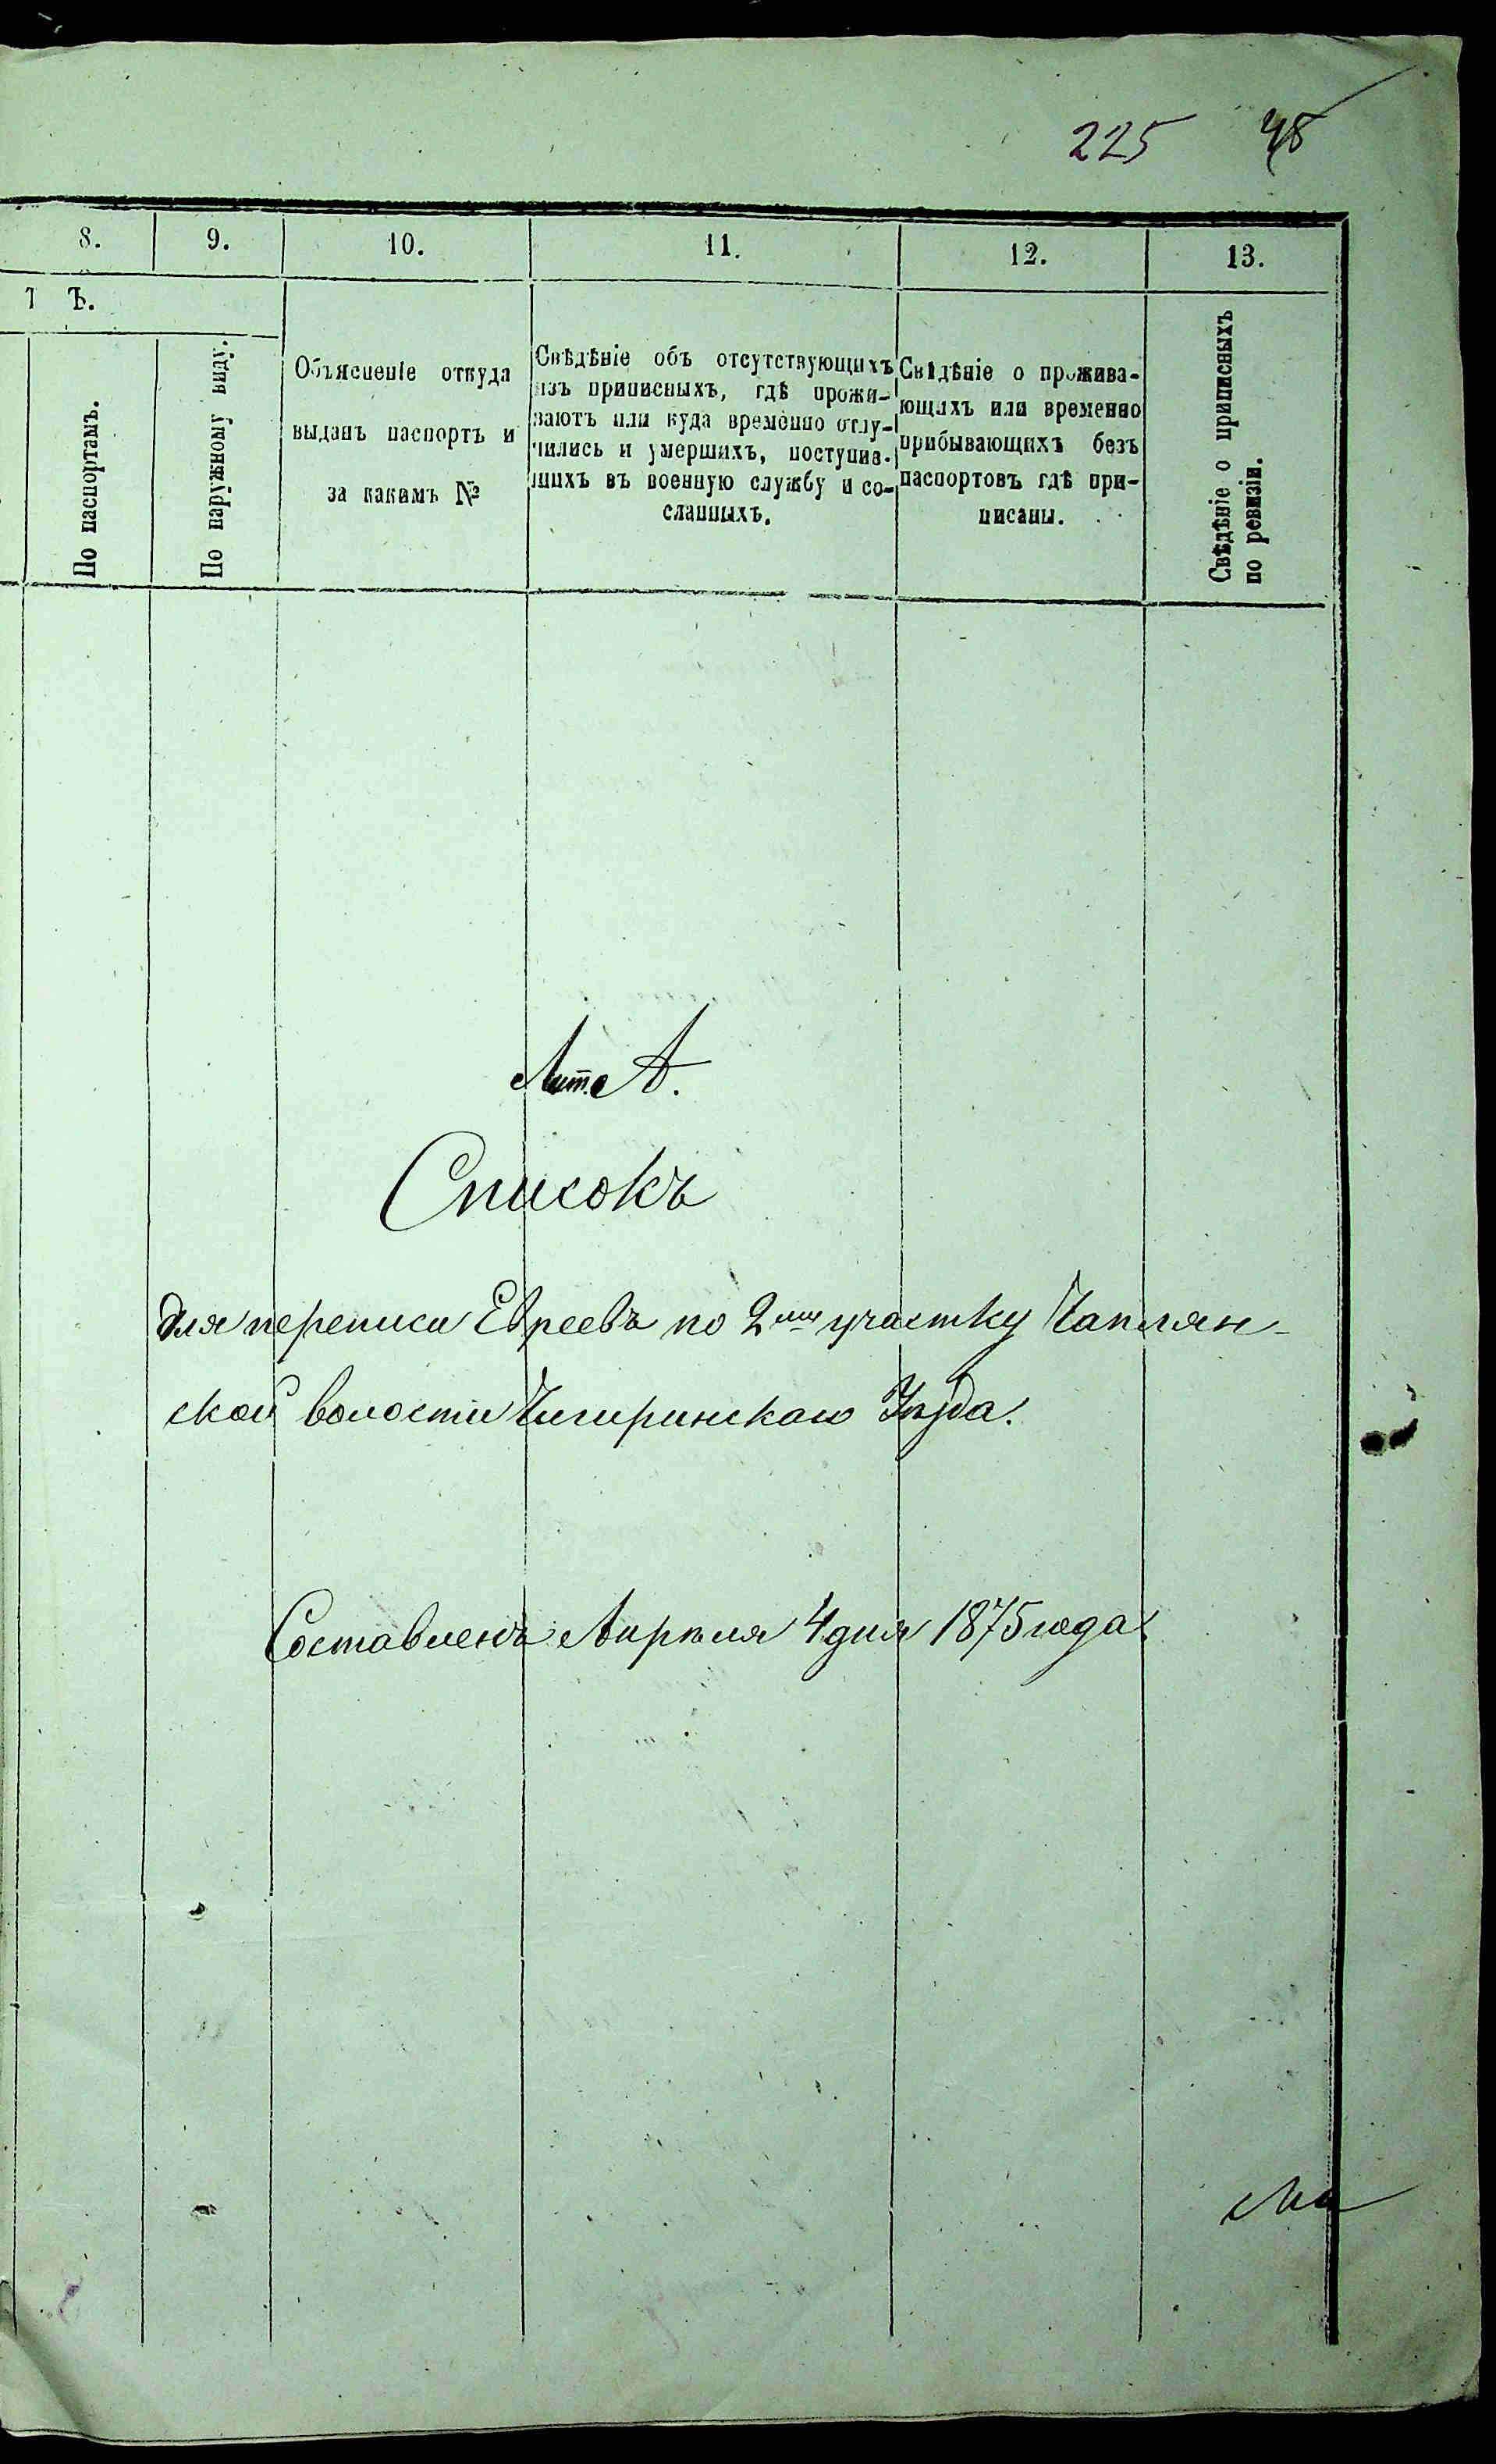 225 48
8. 9. 10. 11. 12. 13.
Ъ.
По паспортамъ.
По наружному виду.
Объясненіе откуда
выданъ паспортъ и
за какимъ №
Свѣдѣніе объ отсутствующихъ
изъ приписныхъ, гдѣ прожи-
ваютъ или куда временно отлу-
чились и умершихъ, поступив-
шихъ въ военную службу и со-
сланныхъ.
Свѣдѣніе о прожива-
ющихъ или временно
прибывающихъ безъ
паспортовъ гдѣ при-
писаны.
Свѣдѣніе о приписныхъ
по ревизіи.
Лит. А.
Списокъ
для переписи Евреевъ по 2му участку Чаплян-
ской волости Чигиринскаго Уѣзда.
Составленъ Апрѣля 4 дня 1875 года.